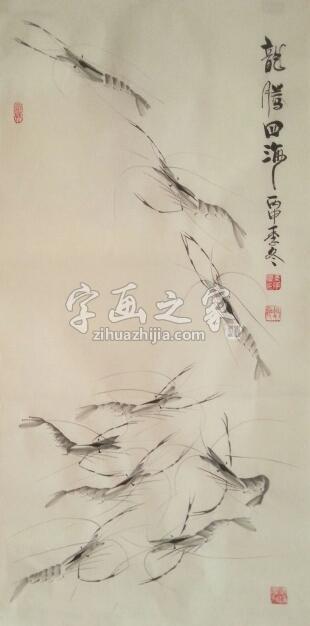 龍騰四海
丙申季冬
字画之家
zihuazhijia.com